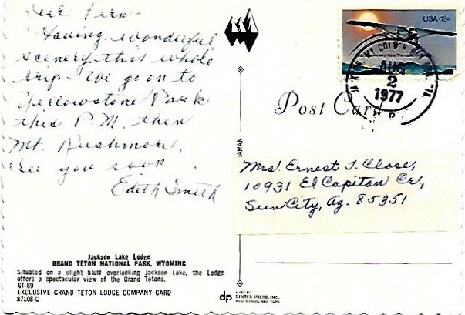 Dear Vera -
Having wonderful
scenery this whole
trip - We go on to
Yellowstone Park
this P.M. then
Mt. Rushmore,
See you soon.
Edith Smith
Jackson Lake Lodge
GRAND TETON NATIONAL PARK, WYOMING
Situated on a slight bluff overlooking Jackson Lake, the Lodge
offers a spectacular view of the Grand Tetons.
GT 89
EXCLUSIVE GRAND TETON LODGE COMPANY CARD
USA 13c
AUG
2
1977
Post Card
Mrs. Ernest T. Close,
10931 El Capitan Cr,
Sun City, Az. 85351
dp